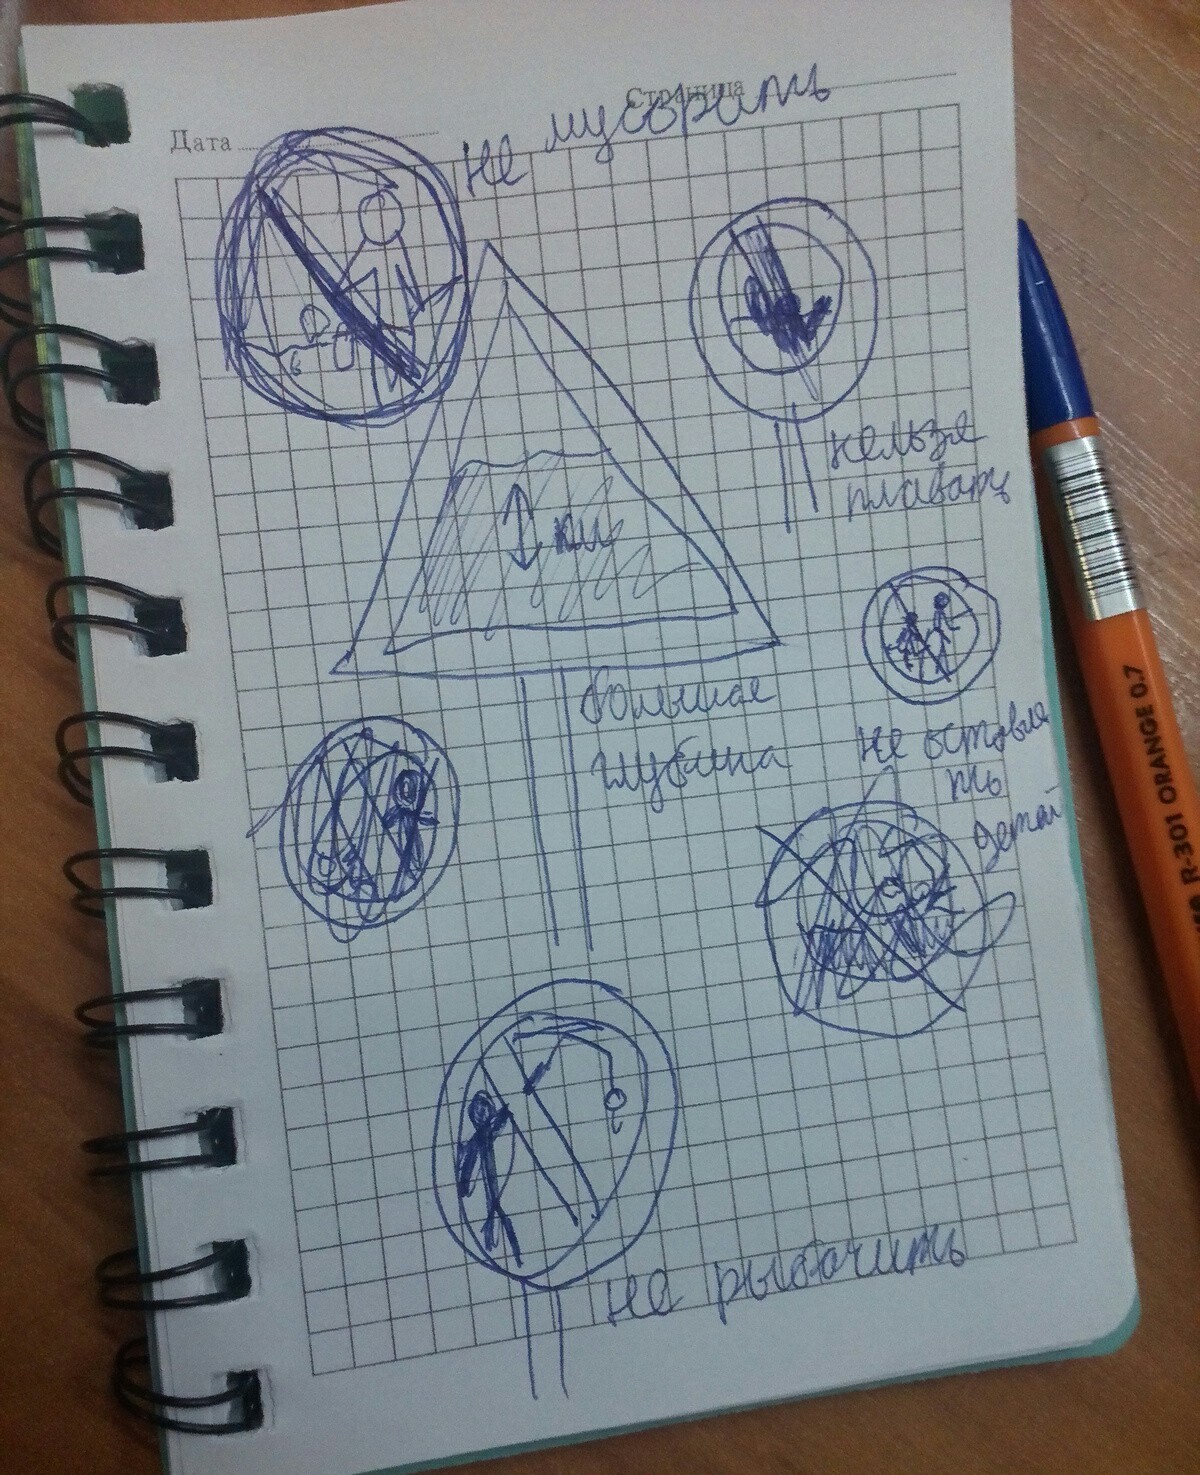 Дата
Страница
не мусорить
нельзя
плавать
км
большая
глубина
не оставля
ть
детей
не рыбачить
R-301 ORANGE 0.7